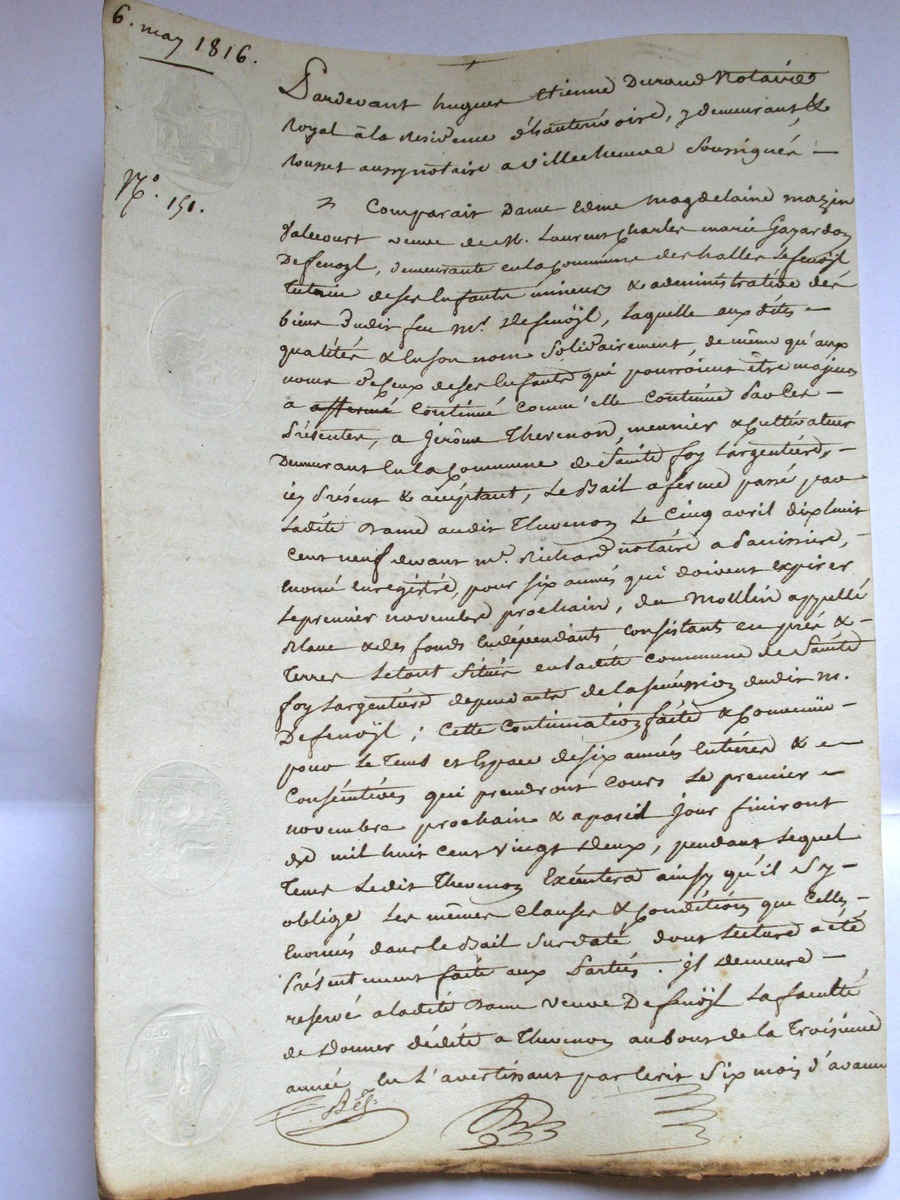 6. may 1816.
Pardevant hugues etienne Durand Notaire
Royal à la Residence d'hauterivoire, y demeurant, &
Rousset aussy notaire a villechenève Soussignés —
N.o 151.
Comparait Dame Edme magdelaine mazin
Dalecourt veuve de M. Laurent Charles marie Gayardon
Defenoyl, demeurante en la Commune des halles Lefenoÿl
tutrice de ses Enfants mineurs & administratrice des
biens dudit feu mr. Defenoÿl, laquelle aux dites —
qualités & en son nom Solidairement, de même qu'aux
noms de Ceux de ses Enfants qui pourroient être majeurs
a affermé Continué comm'elle Continue Par Ces —
Présentes, a Jérôme Thevenon, meunier & Cultivateur
Demeurant en la Commune de Sainte foy Largentière, —
icy Présent & acceptant, Le Bail a ferme passé par
Ladite Dame audit Thevenon Le Cinq avril dix huit
Cent neuf devant me. Richard notaire a
Enoncé enregistré, pour six années qui doivent Expirer
Le premier novembre prochain, du Moullin appellé
Blanc & des fonds En dépendants consistants en prés &
Terres Le tout Situés en Ladite Commune de Sainte
foy Largentière dependants de la succession dudit M.
Defenoÿl ; Cette Continuation faite & Convenüe —
pour Le Tems et Espace de six années Entières & —
Consécutives qui prendront Cours Le premier —
novembre prochain & a pareil Jour finiront
de mil huit Cent vingt deux, pendant Lequel
Tems Ledit Thevenon Exécutera ainsy qu'il s'y —
oblige Les mêmes Clauses & Conditions que Celles —
Enoncés dans le Bail Sus daté dont Lecture a été
Présentement faite aux Parties. Il demeure —
reservé a ladite Dame veuve Defenoÿl La faculté
de Donner dédite a Thevenon au bout de la Troisième
année en L'avertissant par Ecrit Six mois d'avance